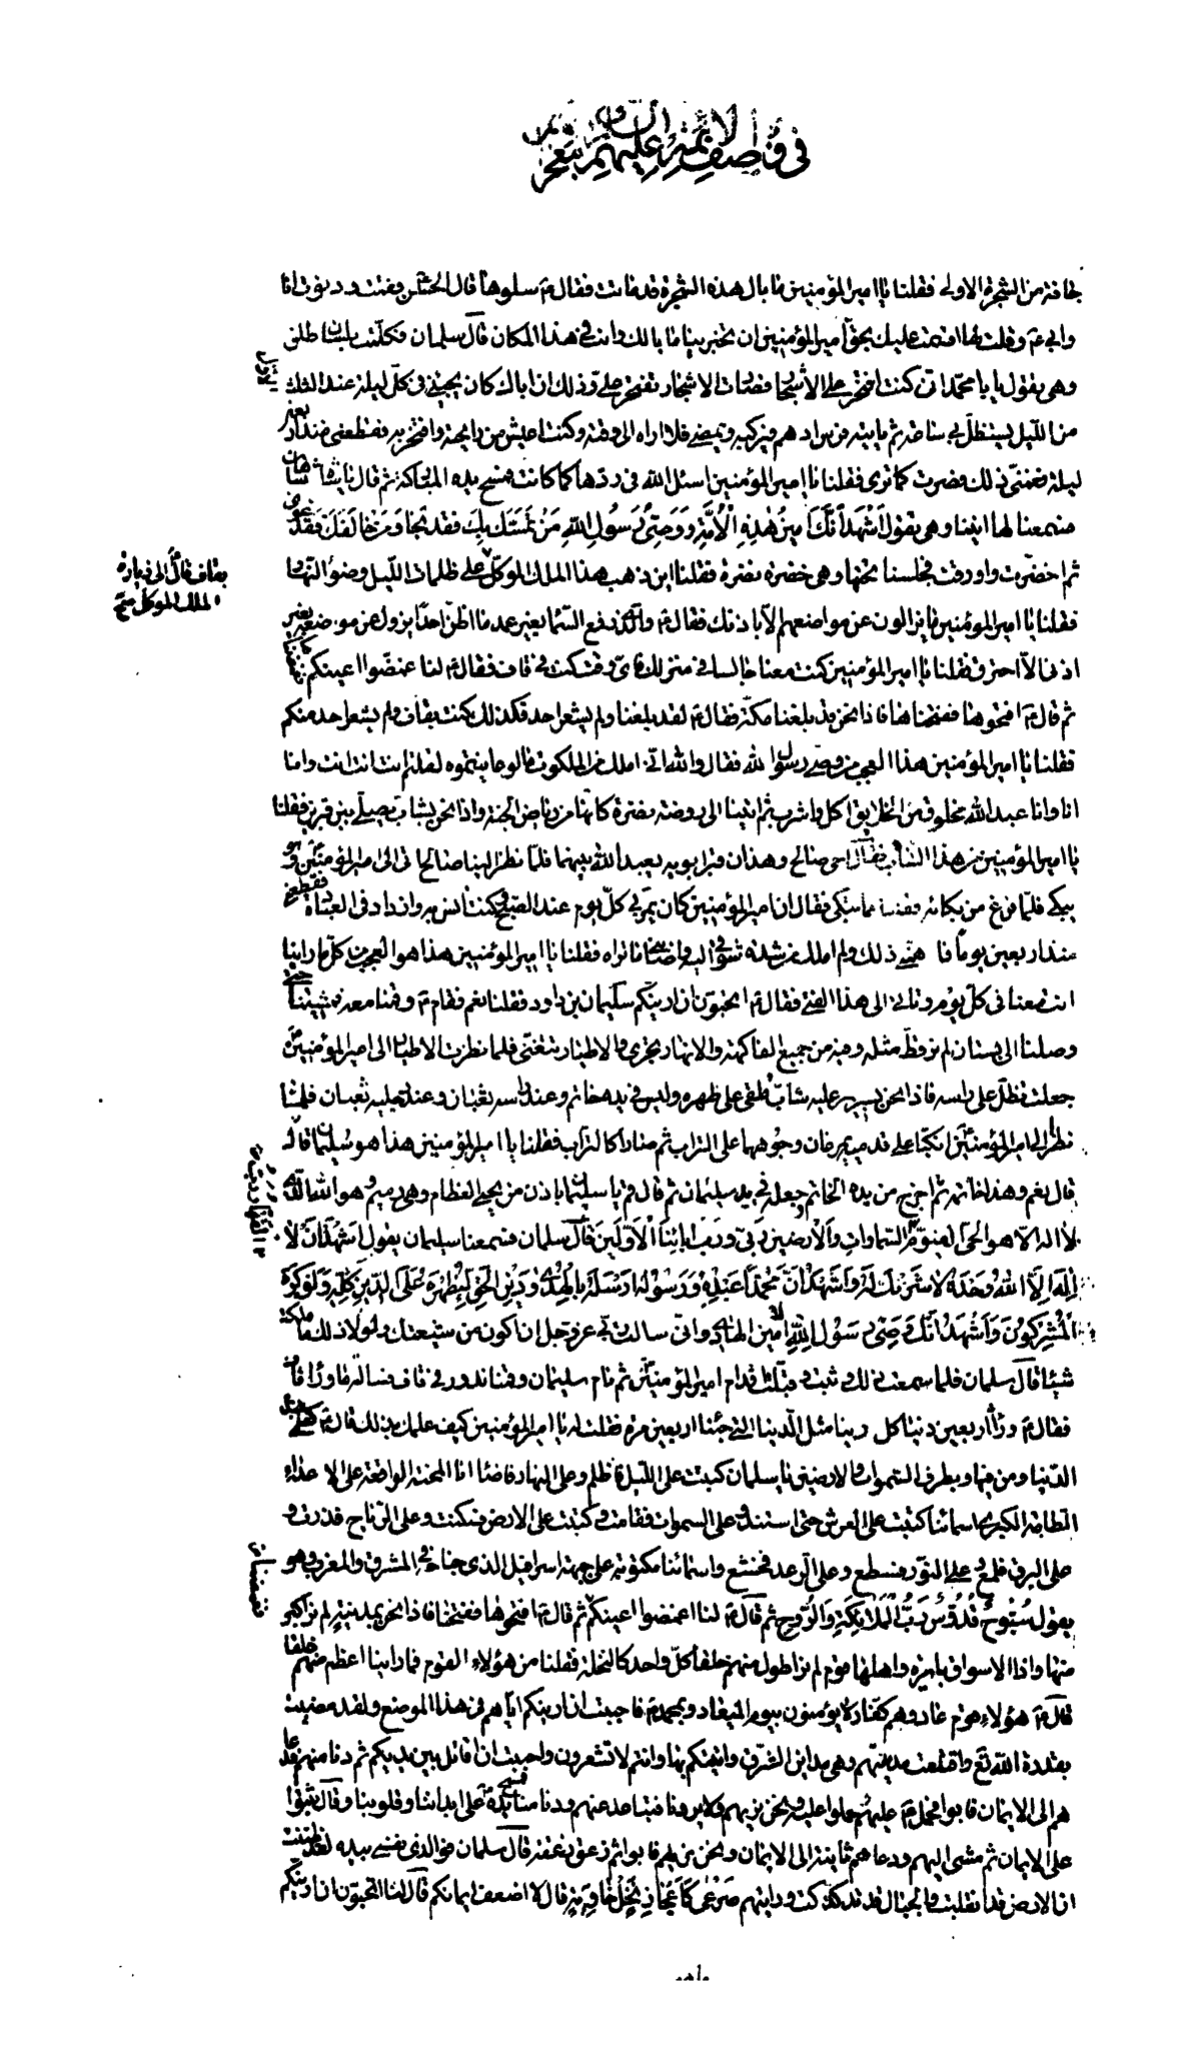 في أوصاف الأئمة عليهم السلام
جافة من الشجرة الاولى فقلنا يا امير المؤمنين ما بال هذه الشجرة قد فقال ع سلوها قال الحسن فقمت ودنوت انا
وابي ع وقلت لها اقسمت عليك بحق امير المؤمنين ان تخبرينا ما بالك وانت في هذا المكان قال سلمان فكلمت بلسان طلق
وهي يقول يا با محمد اني كنت افتخر على الأشجار فصارت الاشجار تفتخر على وذلك ان اباك كان يجيئني في كل ليلة عند الثلث
من الليل يستظل بي ساعة ثم ياتيه فرس ادهم فيركبه ويمضي فلا اراه الى وقته وكنت اعيش من رايحته وافتخر به فقطعني منذ اربعين
ليلة فغمني ذلك فصرت كما ترى فقلنا يا امير المؤمنين اسئل الله في ردها كما كانت فمسح يده المباركة ثم قال يا
فسمعنا لها انينا وهي يقول أشهد أنك أمين هذه الأمة ووصي رسول الله من تمسك بك فقد نجا ومن تخالف فقد غوى
ثم اخضرت واورقت فجلسنا تحتها وهي خضرة نضرة فقلنا اين ذهب هذا الملك الموكل على ظلمات الليل وضوء النهار
بقاف قال ع الى زيارة
الملك الموكل
فقلنا يا امير المؤمنين ما يزالون عن مواضعهم الا باذنك فقال ع والذي رفع السماء بغير عمد ما اظن احدا يزول عن موضعه بغير
اذني الا احترق فقلنا يا امير المؤمنين كنت معنا جالسا في منزلك فاي وقت كنت في قاف فقال ع لنا غمضوا اعينكم
ثم قال ع افتحوها ففتحناها فاذا نحن قد بلغنا مكة فقال ع لقد بلغنا ولم يشعر احد فكذلك كنت بقاف ولم يشعر احد منكم
فقلنا يا امير المؤمنين هذا العجب من وصي رسول الله فقال والله اني املك من الملكوت ما لو عاينتموه لقلتم انت انت انت وانا
انا وانا عبد الله مخلوق من الخلايق اكل واشرب ثم اتينا الى روضة نضرة كانها من رياض الجنة واذا نحن بشاب يصلي بين قبرين فقلنا
يا امير المؤمنين من هذا الشاب فقال اخى صالح وهذان قبرا ابويه يعبد الله بينهما فلما نظر الينا صالح اتى الى امير المؤمنين وهو
يبكي فلما فرغ من بكائه فقلنا مما تبكى فقال ان امير المؤمنين كان يمر بي كل يوم عند الصبح وكنت انس به وازداد في العبادة فقطعني
منذ اربعين يوما فا همني ذلك ولم املك من شدة شوقى اليه فقلنا يا امير المؤمنين هذا هو العجب من كل ما راينا
انت معنا في كل يوم وتاتي الى هذا الفتى فقال ع اتحبون ان اريكم سليمان بن داود فقلنا نعم فقام ع وقمنا معه فمشينا حتى
وصلنا الى بستان لم نر قط مثله وفيه من جميع الفاكهة والانهار يجري والاطيار يتغنى فلما نظرت الاطيار الى امير المؤمنين ع
جعلت تظل على راسه فاذا نحن بسرير عليه شاب ملقى على ظهره وليس في يده خاتم وعند راسه ثعبان وعند رجليه ثعبان فلما
نظرا الى امير المؤمنين انكبا على قدميه يمرغان وجوههما على التراب ثم صارا كالتراب فقلنا يا امير المؤمنين هذا هو سليمان قال
قال نعم وهذا خاتمه ثم اخرج من يده الخاتم وجعله في يد سليمان ثم قال قم يا سليمان باذن من يحيى العظام وهي رميم وهو الله الذي
لا اله الا هو الحي القيوم السماوات والأرضين ربي ورب آبائنا الأولين قال سلمان فسمعنا سليمان يقول اشهد أن لا
إله إلا الله وحده لا شريك له وأشهد أن محمدا عبده ورسوله أرسله بالهدى ودين الحق ليظهره على الدين كله ولو كره
المشركون وأشهد أنك وصى رسول الله الأمين الهادي واني سالت ربي عز وجل ان اكون من شيعتك ولولا ذلك ما ملكت
شيئا قال سلمان فلما سمعت ذلك وثبت وقبلت اقدام امير المؤمنين ثم نام سليمان وقمنا ندور في قاف فسالته ما وراء قاف
فقال ع وراه اربعين دنيا كل دنيا مثل الدنيا التي جئنا اربعين مرة فقلت له يا امير المؤمنين كيف علمك بذلك قال ع كعلمي بهذه
الدنيا ومن فيها وبطرق السموات والارضين يا سلمان كتبت على الليل فاظلم وعلى النهار فاضاء انا المحنة الواقعة على الاعداء
الطامة الكبرى اسمائنا كتبت على العرش حتى استند وعلى السموات فقامت وكتبت على الارض فسكنت وعلى الرياح فذرت و
على البرق فلمع وعلى النور فسطع وعلى الرعد فخشع واسمائنا مكتوبة على جبهة اسرافيل الذي جناحه في المشرق والمغرب وهو
يقول سبوح قدوس رب الملائكة والروح ثم قال ع لنا اغمضوا اعينكم ثم قال ع افتحوها ففتحناها فاذا نحن بمدينة لم نر اكبر
منها واذا الاسواق بايرة واهلها قوم لم نر اطول منهم خلقا كل واحد كالنخلة فقلنا من هؤلاء القوم فما راينا اعظم منهم خلقا
قال ع هؤلاء قوم عاد وهم كفار لا يؤمنون بيوم الميعاد وبمحمد ص فاحببت ان اريكم اياهم في هذا الموضع ولقد مضيت
بقدرة الله تع واقتلعت مدينتهم وهي مداين الشرق واتيتكم بها وانتم لا تشعرون واحببت ان اقاتل بين يديكم ثم دنا منهم فدعا
هم الى الايمان فابوا فحمل ع عليهم وحملوا عليه ونحن نريهم ولا يرونا فتباعد عنهم ودنا منا فمسح يده على ابداننا وقلوبنا وقال ثبتوا
على الايمان ثم مشى اليهم ودعاهم ثانية الى الايمان ونحن نريهم فابوا ثم زعق زعقة قال سلمان فوالذى نفسي بيده لقد ظننت
ان الارض قد انقلبت والجبال قد تدكدكت ورايتهم صرعى كأعجاز نخل خاوية قال لا اضعف ايمانكم قال لنا اتحبون ان اريكم